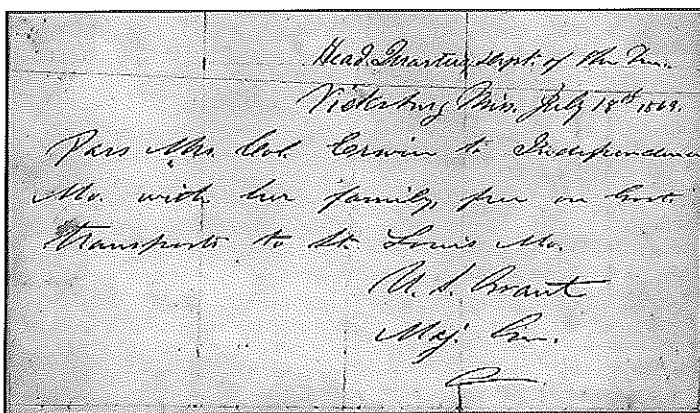 Head Quarters, Dept. of the Ten.
Vicksburg Miss. July 18th 1863.
Pass Mrs. Col. Erwin to Independence
Mo. with her family, free on Govt.
Transports to St. Louis Mo.
U. S. Grant
Maj. Gen.